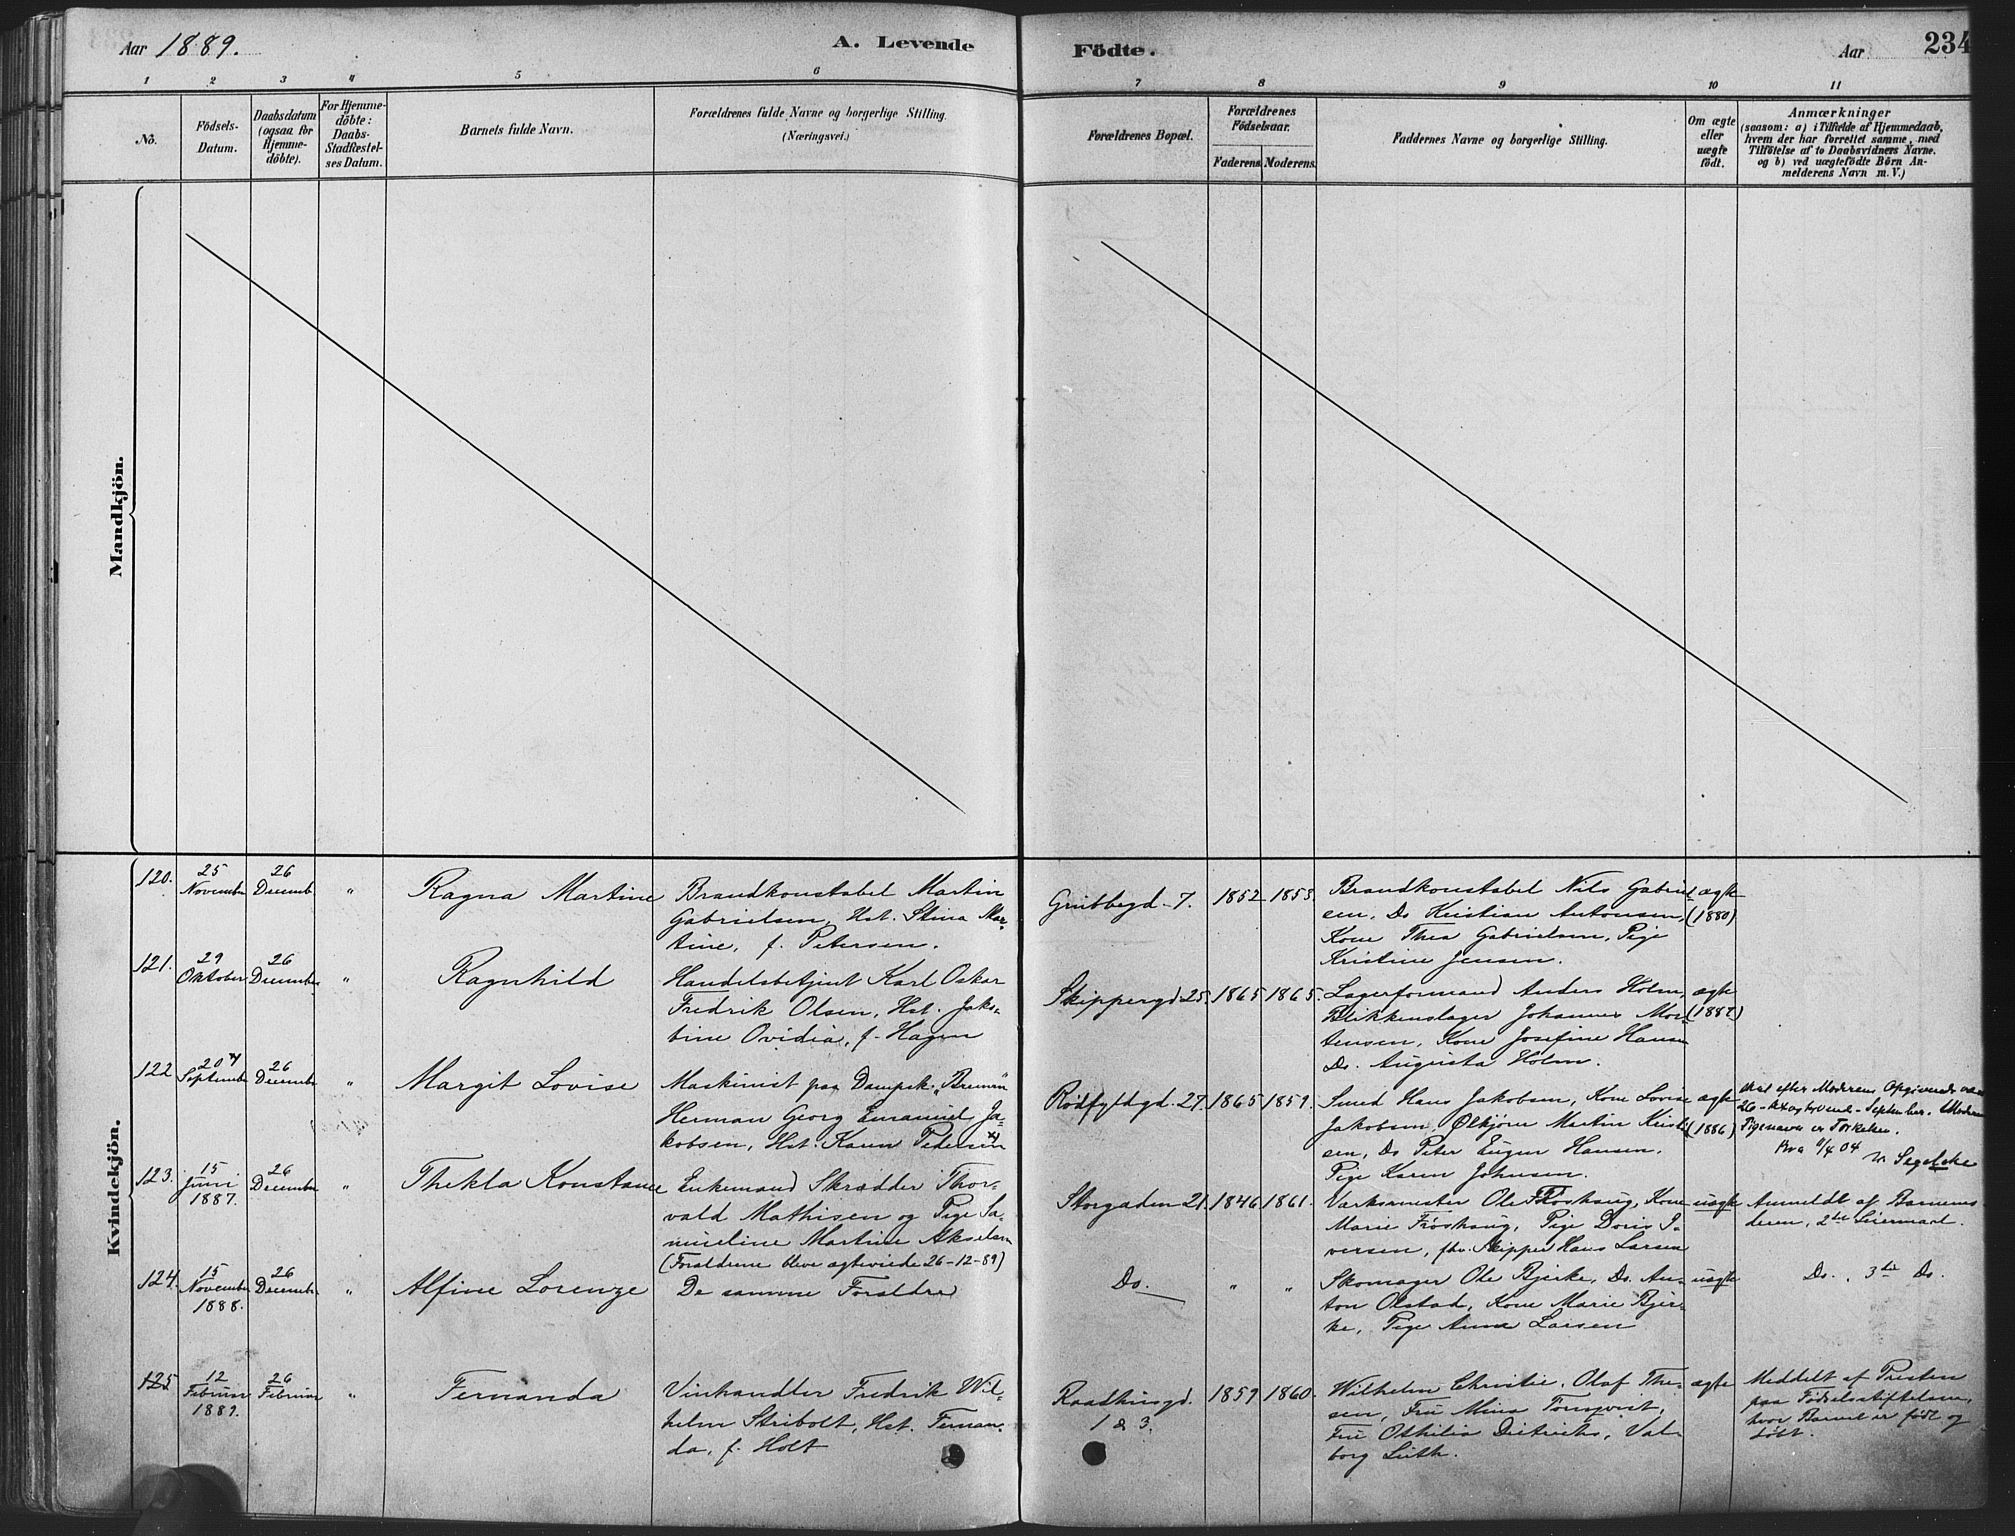 Aar 1889.
A. Levende
Födte.
Aar
234
1 2 3 4 5 6 7 8 9 10 11
No.
Födsels-
Datum.
Daabsdatum
(ogsaa for
Hjemme-
döbte).
For Hjemme-
döbte:
Daabs-
Stadfæstel-
ses Datum.
Barnets fulde Navn.
Forældrenes fulde Navne og borgerlige Stilling.
(Næringsvei.)
Forældrenes Bopæl.
Forældrenes
Födselsaar.
Faderens. Moderens.
Faddernes Navne og borgerlige Stilling.
Om ægte
eller
uægte
födt.
Anmærkninger
(saasom: a) i Tilfælde af Hjemmedaab,
hvem der har forrettet samme, med
Tilföielse af to Daabsvidners Navne.
og b) ved uægtefödte Börn An-
melderens Navn m. V.)
Mandkjön.
Kvindekjön.
120.
25
November
26
December
"
Ragna Martine
Brandkonstabel Martin
Gabrielsen, Hst. Stina Mar-
tine, f. Petersen.
Grubbegd. 7.
1852 1853
Brandkonstabel Nils Gabriel-
sen, Do Kristian Antonsen,
Kone Thea Gabrielsen, Pige
Kristine Jensen.
ægte
(1880)
121.
29
Oktober
26
December
"
Ragnhild
Handelsbetjent Karl Oskar
Fredrik Olsen, Hst. Jako-
bine Ovidia, f. Hagen
Skippergd. 25.
1865 1865.
Lagerformand Anders Holm,
Blikkenslager Johannes Mor-
tensen, Kone Josefine Hansen
Do. Augusta Holm.
ægte
(1887)
122
20 x)
September
26
December
"
Margit Lovise
Maskinist paa Dampsk. "Bremen"
Herman Georg Emanuel Ja-
kobsen, Hst. Karen Petersen x)
Rødfyldgd. 27.
1865 1859.
Smed Hans Jakobsen, Kone Lovise
Jakobsen, Ølkjører Martin Kristi-
sen, Do Peter Eugen Hansen.
Pige Karen Johnsen.
ægte
(1886)
skal efter Moderens Opgivende være
26 - sexogtyvende - September. Moderens
Pigenavn er Torkelsen.
9/4 04
Segelcke
123.
15
Juni
1887.
26
December
"
Thekla Konstance
Enkemand Skrædder Thor-
vald Mathisen og Pige Sa-
mueline Martine Akselsen
(Forældrene bleve ægteviede 26-12-89)
Storgaden 21.
1846 1861.
Værksmester Ole Frøshaug, Kone
Marie Frøshaug, Pige Doris I-
versen, fhv. Skipper Hans Larsen
uægte
Anmeldt af Barnefa-
deren, 2det Leiermaal.
124.
15
November
1888.
26
December
"
Alfine Lorenze
De samme Forældre
Do.
" "
Skomager Ole Bjerke, Do. An-
ton Olstad, Kone Marie Bjer-
ke, Pige Anna Larsen
uægte
Do., 3die Do.
125
12
Februar
1889.
26
Februar
"
Fernanda
Vinhandler Fredrik Wil-
helm Stribolt, Hst. Fernan-
da, f. Holt
Raadhusgd.
1 & 3.
1859 1860.
Wilhelm Christie, Olaf The-
sen, Fru Mina Tornqvist,
Fru Othilia Dietrichs, Val-
borg Lüth.
ægte
Meddelt af Presten
paa Fødselsstiftelsen,
hvor Barnet er født og
døbt.